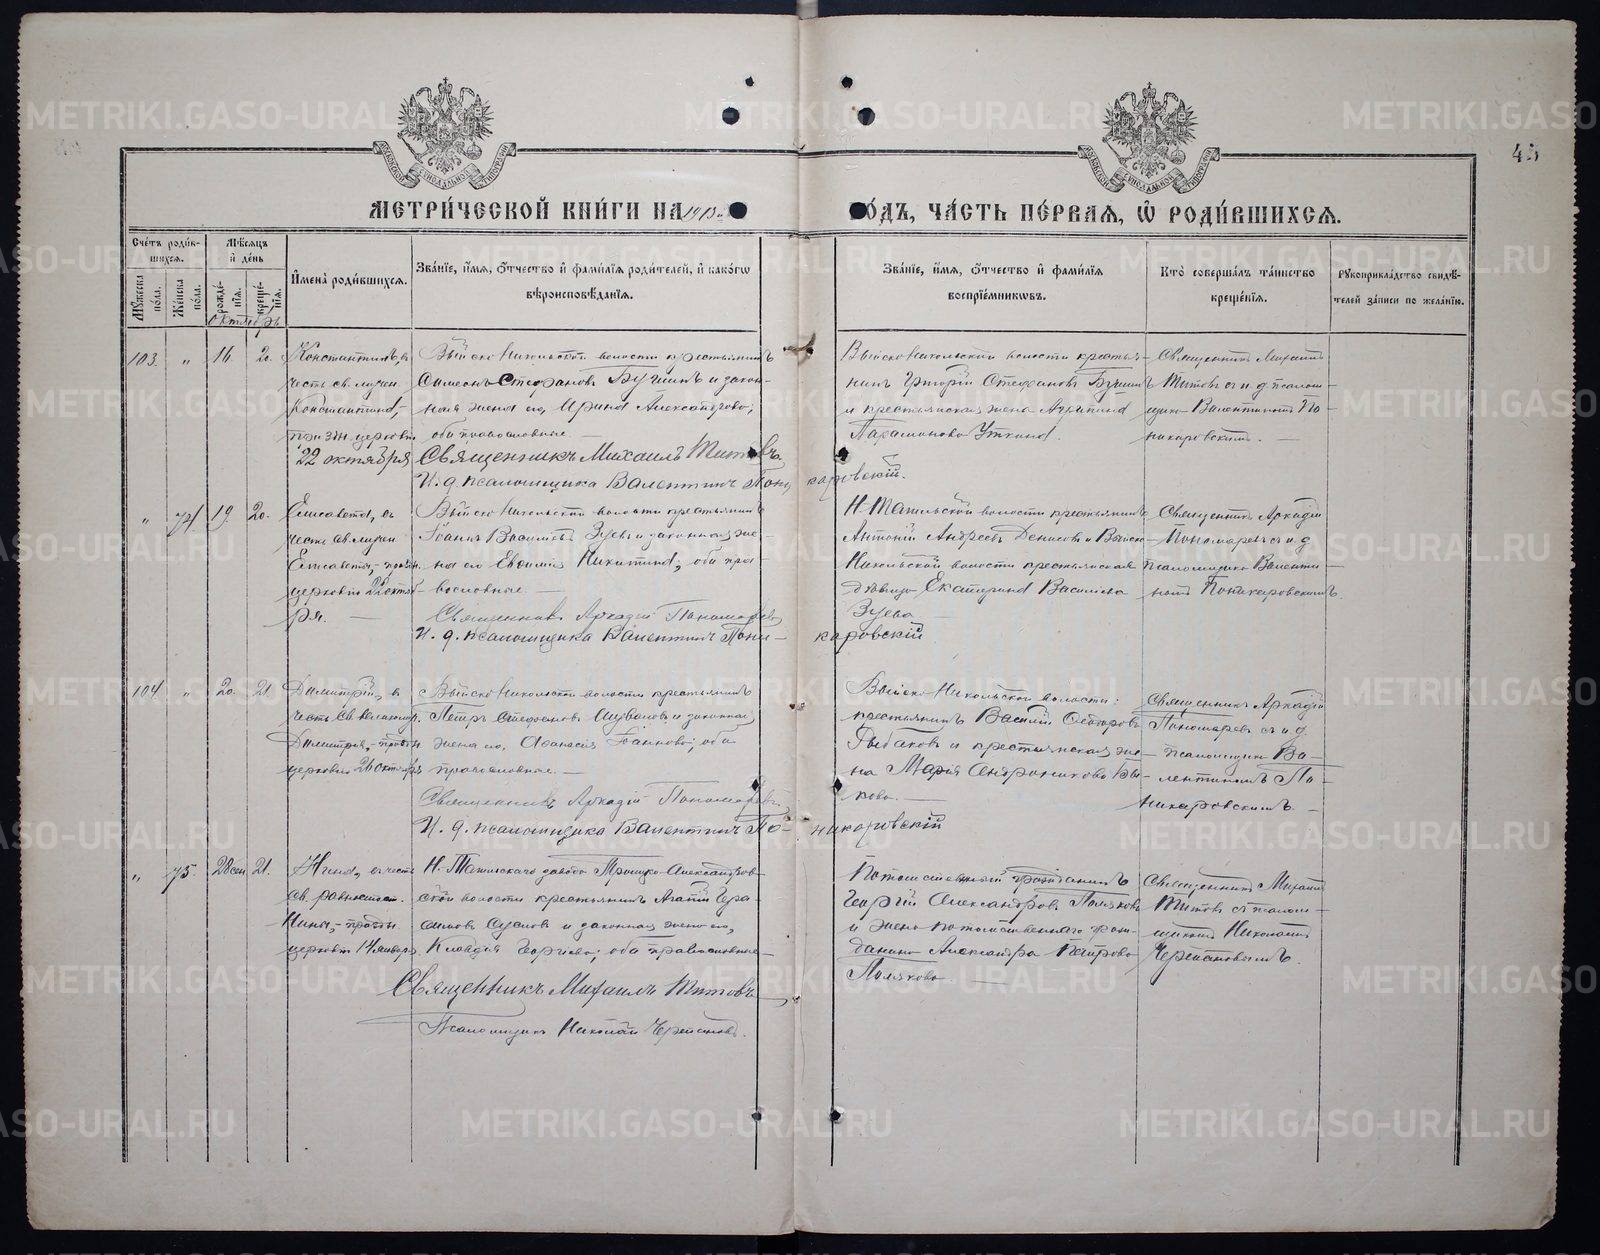 45
МЕТРИ́ЧЕСКОЙ КНИ́ГИ НА 1913
ГО́ДЪ, ЧА́СТЬ ПЕ́РВАѦ, Ѽ РОДИ́ВШИХСѦ.
Сче́тъ роди́в-
шихсѧ.
Му́жеска по́ла.
Же́нска по́ла.
Мѣ́сѧцъ и҆ де́нь
рожде́нїѧ.
креще́нїѧ.
Октябрь
И҆мена̀ роди́вшихсѧ.
Зва́нїе, и҆́мѧ, ѻ҆́тчество и҆ фами́лїѧ роди́телей, и҆ како́гѡ
вѣроисповѣ́данїѧ.
Зва́нїе, и҆́мѧ, ѻ҆́тчество и҆ фами́лїѧ
воспрїе́мникѡвъ.
Кто̀ соверша́лъ та́инство
креще́нїѧ.
Рꙋкоприкла́дство свидѣ́-
телей за́писи по жела́нїю.
103. " 16. 20.
Константинъ, въ
честь св. мучен.
Константина,-
22 октября
Выйско Никольской волости крестьянинъ
Симеонъ Стефановъ Бушинъ и закон-
ная жена его, Ирина Александрова,
оба православные. —
Священникъ Михаилъ Титовъ
И. д. псаломщика Валентинъ Пони-
каровскій.
Выйско Никольской волости крестья-
нинъ Григорій Стефановъ Бушинъ
и крестьянская жена Агрипина
Парамонова Уткина.
Священникъ Михаилъ
Титовъ съ и. д. псалом-
щика Валентиномъ По-
никаровскимъ. —
" 74 19. 20.
Елисавета, въ
честь св. мучен.
Елисаветы,
церковью 22 октяб-
ря. —
Выйско Никольской волости крестьянинъ
Іоаннъ Васильевъ Зуевъ и законная же-
на его Евѳимія Никитина, оба пра-
вославные. —
Священникъ Аркадій Пономаревъ
И. д. псаломщика Валентинъ Пони-
каровскій
Н-Тагильской волости крестьянинъ
Антоній Андреевъ Денисовъ и Выйско-
Никольской волости крестьянская
дѣвица Екатерина Васильева
Зуева
Священникъ Аркадій
Пономаревъ съ и. д.
псаломщика Валенти-
номъ Поникаровскимъ.
104. " 20. 21.
Димитрій, въ
честь св. великомуч.
Димитрія,
церковью 26 октября
Выйско Никольской волости крестьянинъ
Петръ Стефановъ Шуваловъ и законная
жена его, Аѳанасія Іоаннова, оба
православные. —
Священникъ Аркадій Пономаревъ
И. д. псаломщика Валентинъ По-
никаровскій
Выйско Никольской волости:
крестьянинъ Василій Ѳеодоровъ
Рыбаковъ и крестьянская же-
на Марія Андроникова Бы-
кова. —
Священникъ Аркадій
Пономаревъ съ и. д.
псаломщика Ва-
лентиномъ По-
никаровскимъ. —
" 75. 28 сен. 21.
Нина, въ честь
св. равноапост.
Нины,
церковью 14 января
Н. Тагильскаго завода Троицко-Александров-
ской волости крестьянинъ Агапій Гера-
симовъ Сусловъ и законная жена его,
Клавдія Георгіева, оба православные —
Священникъ Михаилъ Титовъ
Псаломщикъ Николай Черепановъ.
Потомственный гражданинъ
Георгій Александровъ Поляковъ
и жена потомственнаго граж-
данина Александра Петрова
Полякова —
Священникъ Михаилъ
Титовъ съ псалом-
щикомъ Николаемъ
Черепановымъ.
METRIKI.GASO-URAL.RU